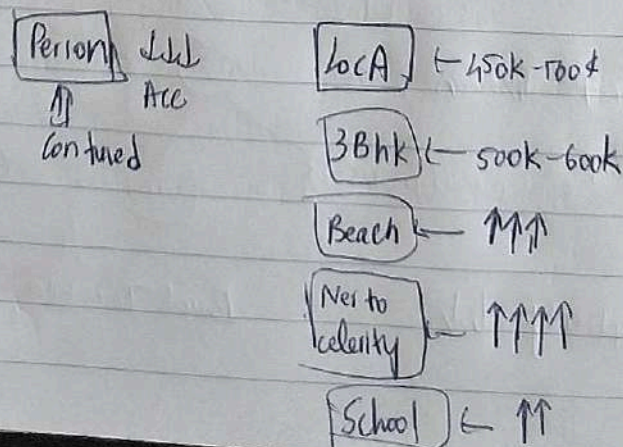 Person ↓↓↓
Acc
⇑
Confused
Loc A ← 450k-500k
3Bhk ← 500k-600k
Beach ← ↑↑↑
Ner to
celerity ← ↑↑↑↑
School ← ↑↑